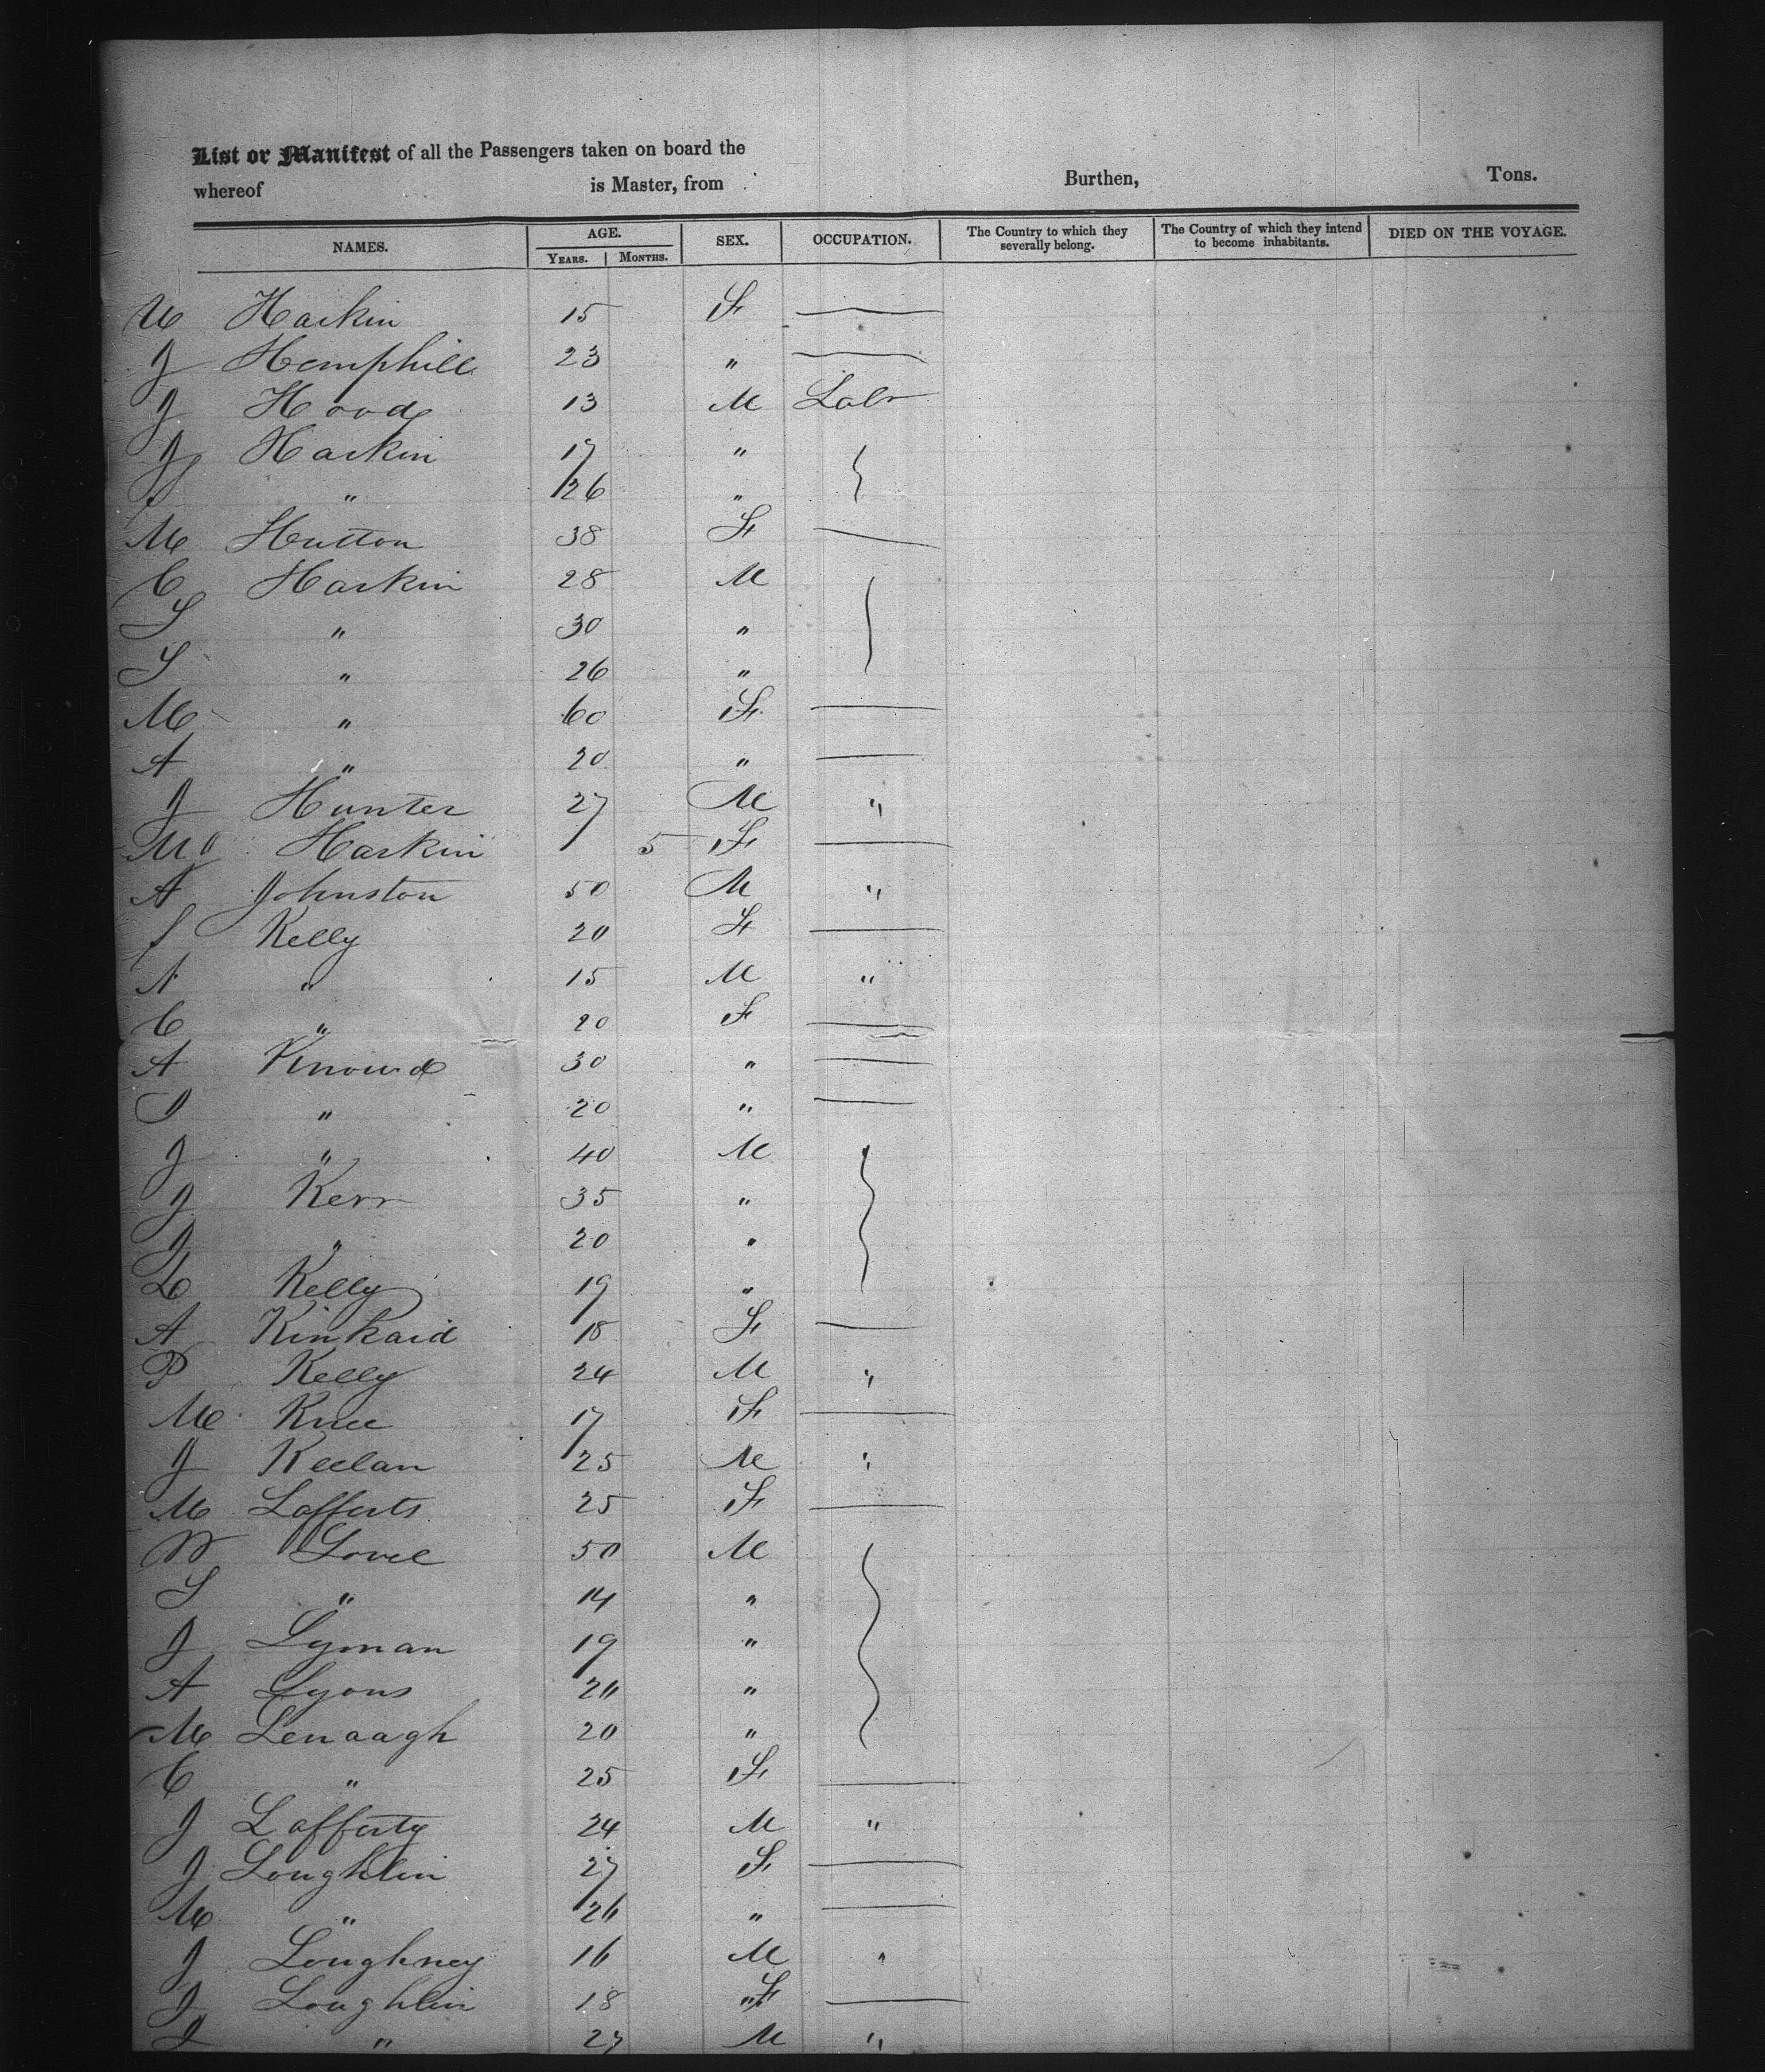 List or Manifest of all the Passengers taken on board the
whereof is Master, from Burthen, Tons.
NAMES. AGE. SEX. OCCUPATION. The Country to which they severally belong. The Country of which they intend to become inhabitants. DIED ON THE VOYAGE.
YEARS. MONTHS.
M Harkin 15 F
J Hemphill 23 "
J Hood 13 M Labr
J Harkin 17 "
J " 26 "
M Hutton 38 F
C Harkin 28 M
S " 30 "
S " 26 "
M " 60 F
A " 20 "
J Hunter 27 M "
M Harkin 5 F
A Johnston 50 M "
Kelly 20 F
A " 15 M "
C " 20 F
A 30 "
" 20 "
J " 40 M
J Kerr 35 "
J " 20 "
L Kelly 19 "
A Kinkaid 18 F
P Kelly 24 M "
M Knee 17 F
J Keelan 25 M "
M Lafferts 25 F
W 50 M
S " 14 "
J Lyman 19 "
A Lyons 20 "
M Lenaagh 20 "
C " 25 F
J Lafferty 24 M "
J Loughlin 27 F
M " 26 "
J Loughney 16 M "
J Loughlin 18 F
" 27 M "